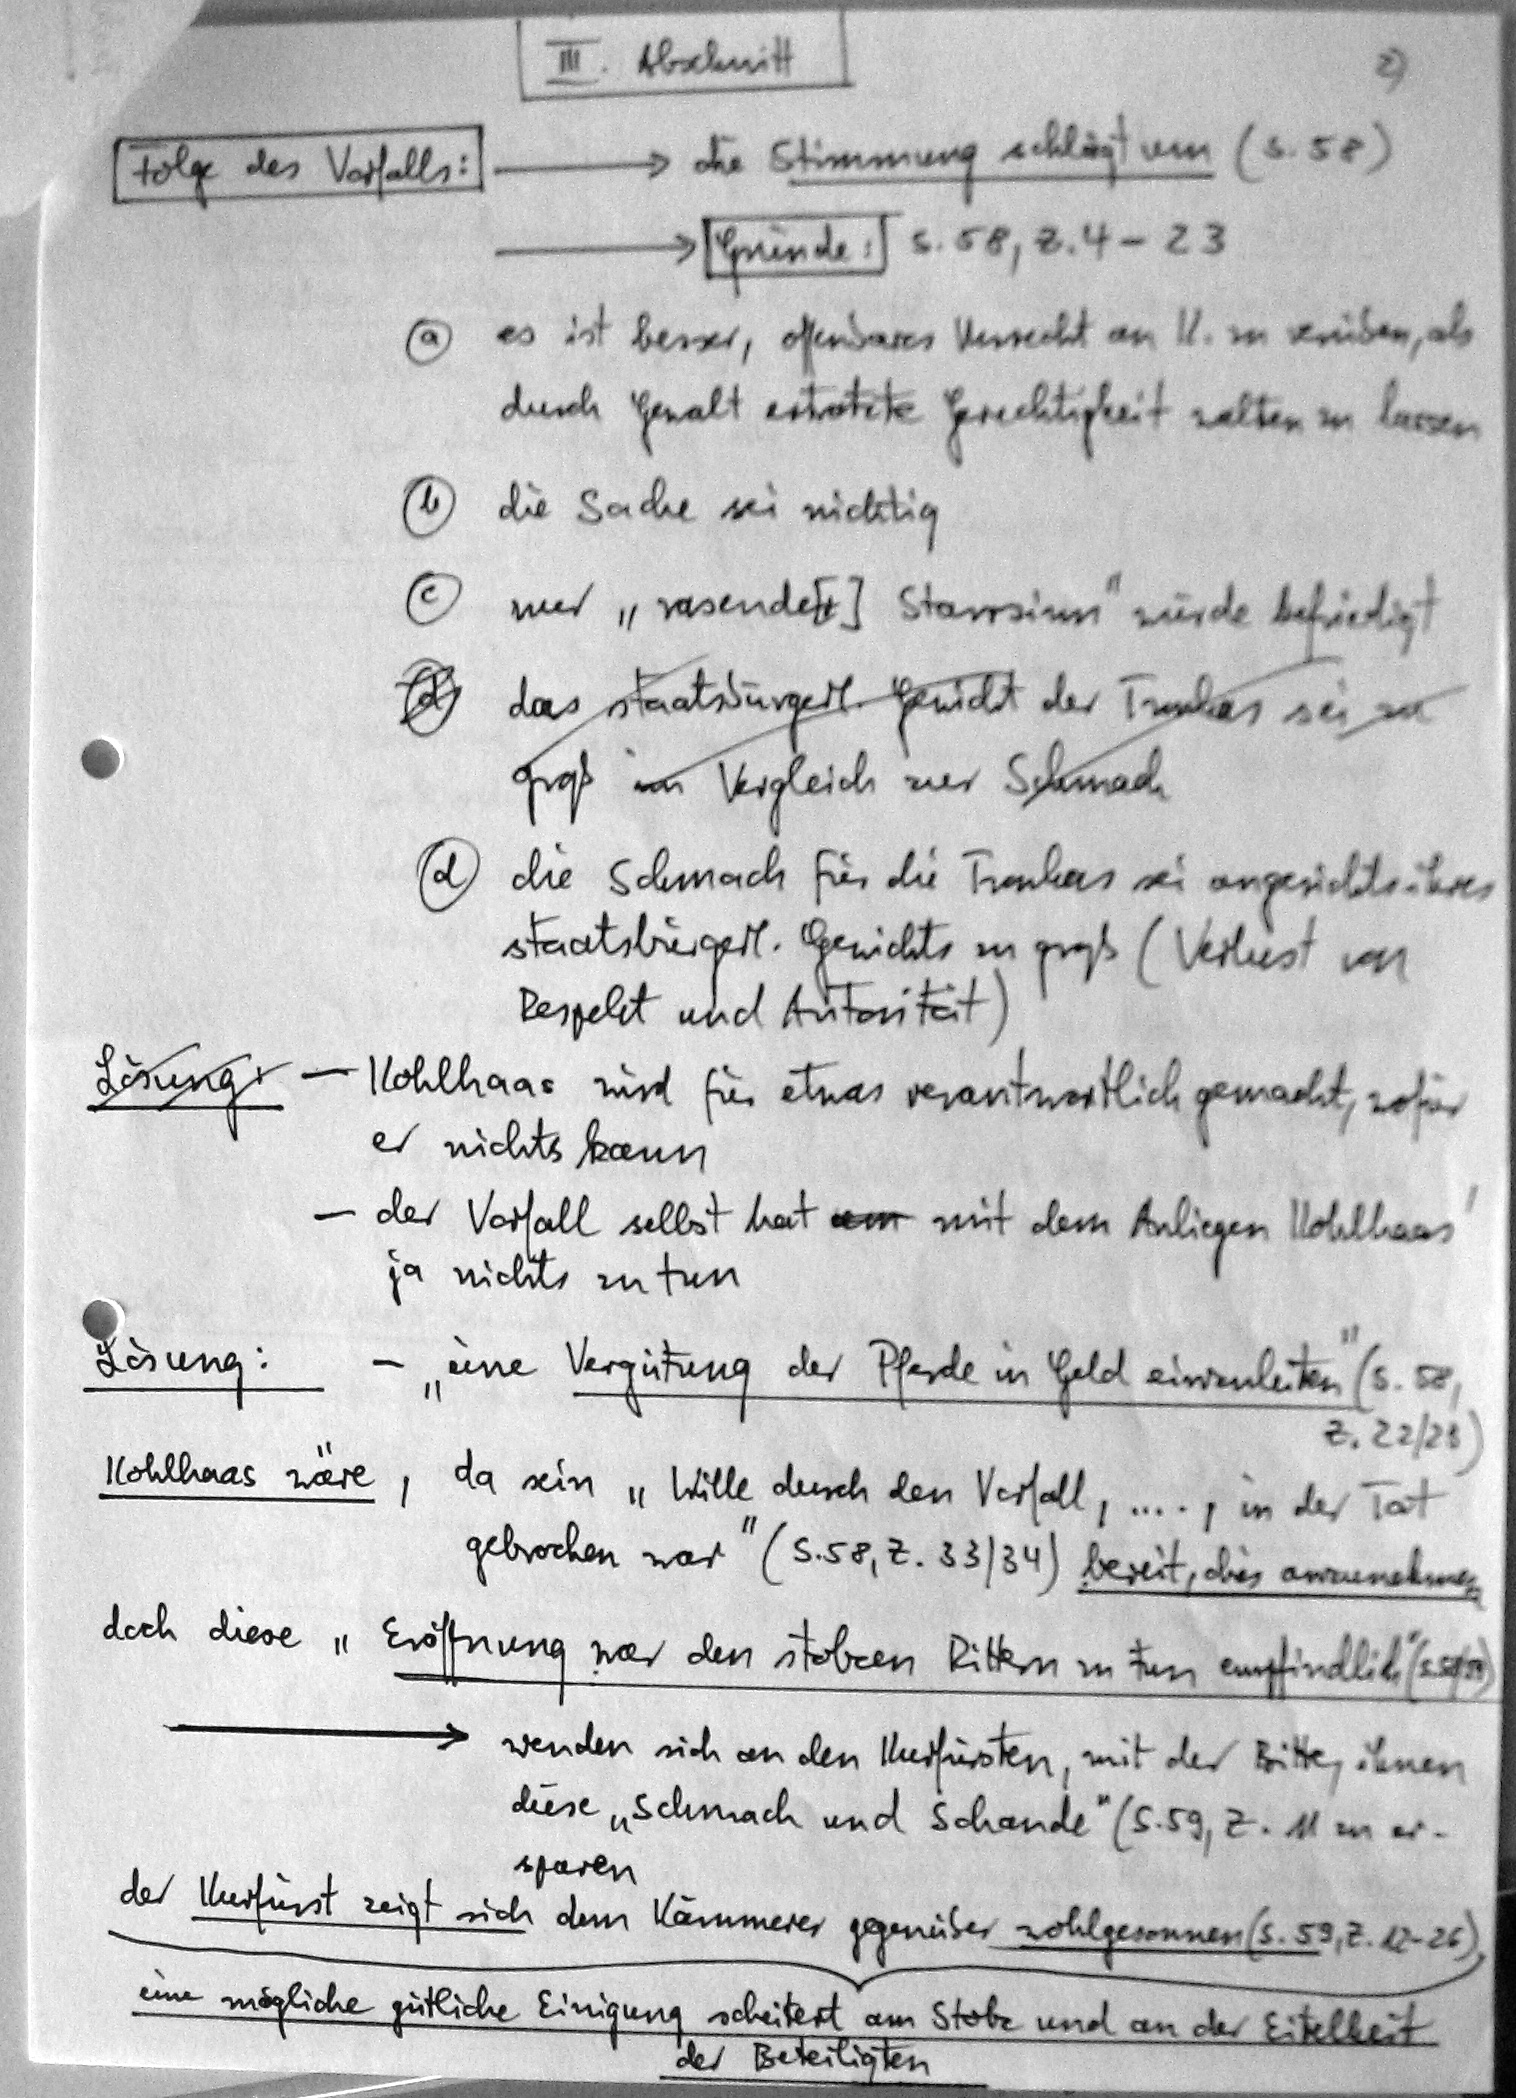 III. Abschnitt
2)
Folge des Vorfalls: → die Stimmung schlägt um (S. 58)
→ Gründe: S. 58, Z. 4 – 23
a es ist besser, offenbares Unrecht an K. zu verüben, als
durch Gewalt ertrotzte Gerechtigkeit walten zu lassen
b die Sache sei nichtig
c nur „rasende[r] Starrsinn" würde befriedigt
d das staatsbürgerl. Gewicht der Tronkas sei zu
groß im Vergleich zur Schmach
d die Schmach für die Tronkas sei angesichts ihres
staatsbürgerl. Gewichts zu groß (Verlust von
Respekt und Autorität)
Lösung: – Kohlhaas wird für etwas verantwortlich gemacht, wofür
er nichts kann
– der Vorfall selbst hat mit dem Anliegen Kohlhaas'
ja nichts zu tun
Lösung: – „eine Vergütung der Pferde in Geld einzuleiten" (S. 58,
Z. 22/23)
Kohlhaas wäre, da sein „Wille durch den Vorfall, ...., in der Tat
gebrochen war" (S. 58, Z. 33/34) bereit, dies anzunehmen
doch diese „Eröffnung war den stolzen Rittern zu tun empfindlich" (S. 58/59)
→ wenden sich an den Kurfürsten, mit der Bitte, ihnen
diese „Schmach und Schande" (S. 59, Z. 11 zu er-
sparen
der Kurfürst zeigt sich dem Kämmerer gegenüber wohlgesonnen (S. 59, Z. 12-26),
eine mögliche gütliche Einigung scheitert am Stolz und an der Eitelkeit
der Beteiligten